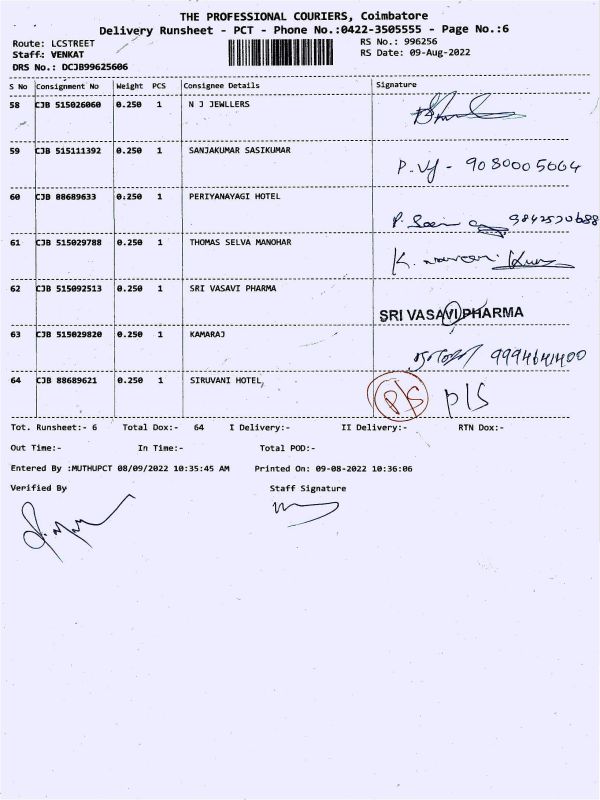 THE PROFESSIONAL COURIERS, Coimbatore
Delivery Runsheet - PCT - Phone No.:0422-3505555 - Page No.:6
Route: LCSTREET RS No.: 996256
Staff: VENKAT RS Date: 09-Aug-2022
DRS No.: DCJB99625606
S No Consignment No Weight PCS Consignee Details Signature
58 CJB 515026060 0.250 1 N J JEWLLERS
59 CJB 515111392 0.250 1 SANJAKUMAR SASIKUMAR
P. Vy - 9080005664
60 CJB 88689633 0.250 1 PERIYANAYAGI HOTEL
P. 9842520688
61 CJB 515029788 0.250 1 THOMAS SELVA MANOHAR
K.
62 CJB 515092513 0.250 1 SRI VASAVI PHARMA
SRI VASAVI PHARMA
63 CJB 515029820 0.250 1 KAMARAJ
9994641400
64 CJB 88689621 0.250 1 SIRUVANI HOTEL,
P/S P/S
Tot. Runsheet:- 6 Total Dox:- 64 I Delivery:- II Delivery:- RTN Dox:-
Out Time:- In Time:- Total POD:-
Entered By :MUTHUPCT 08/09/2022 10:35:45 AM Printed On: 09-08-2022 10:36:06
Verified By Staff Signature